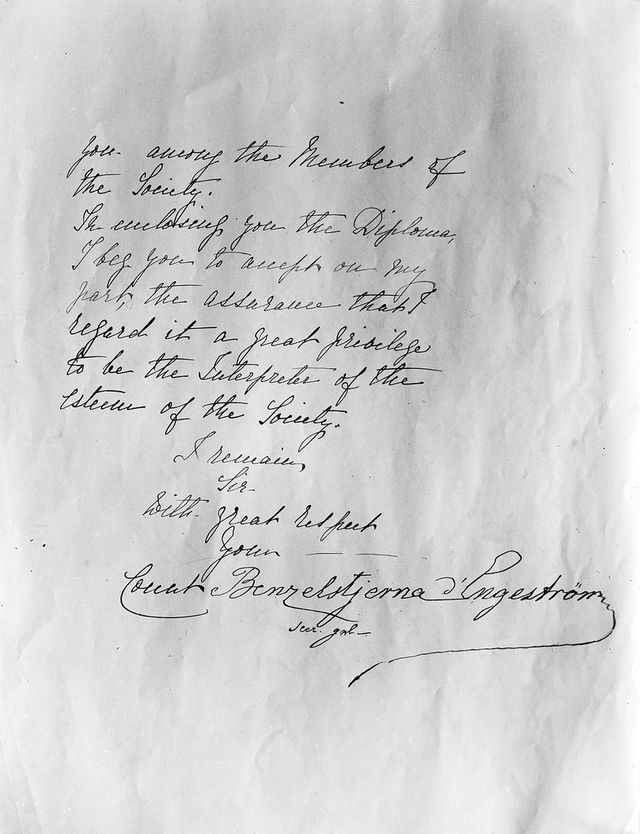 you among the Members of
the Society.
In enclosing you the Diploma,
I beg you to accept on my
part, the assurance that I
regard it a great privilege
to be the Interpreter of the
esteem of the Society.
I remain,
Sir
With great respect
Your
Count Benzelstjerna d'Engeström
secr. gnl